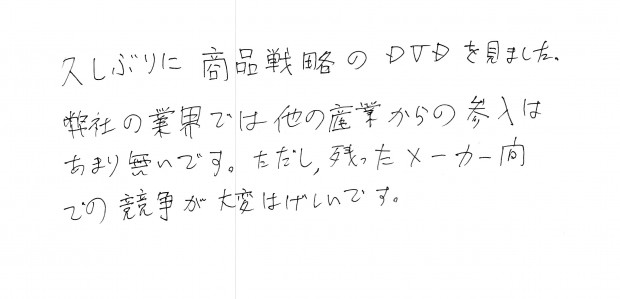 久しぶりに 商品戦略の DVDを見ました。
弊社の業界では他の産業からの参入は
あまり無いです。ただし,残ったメーカー間
での競争が大変はげしいです。